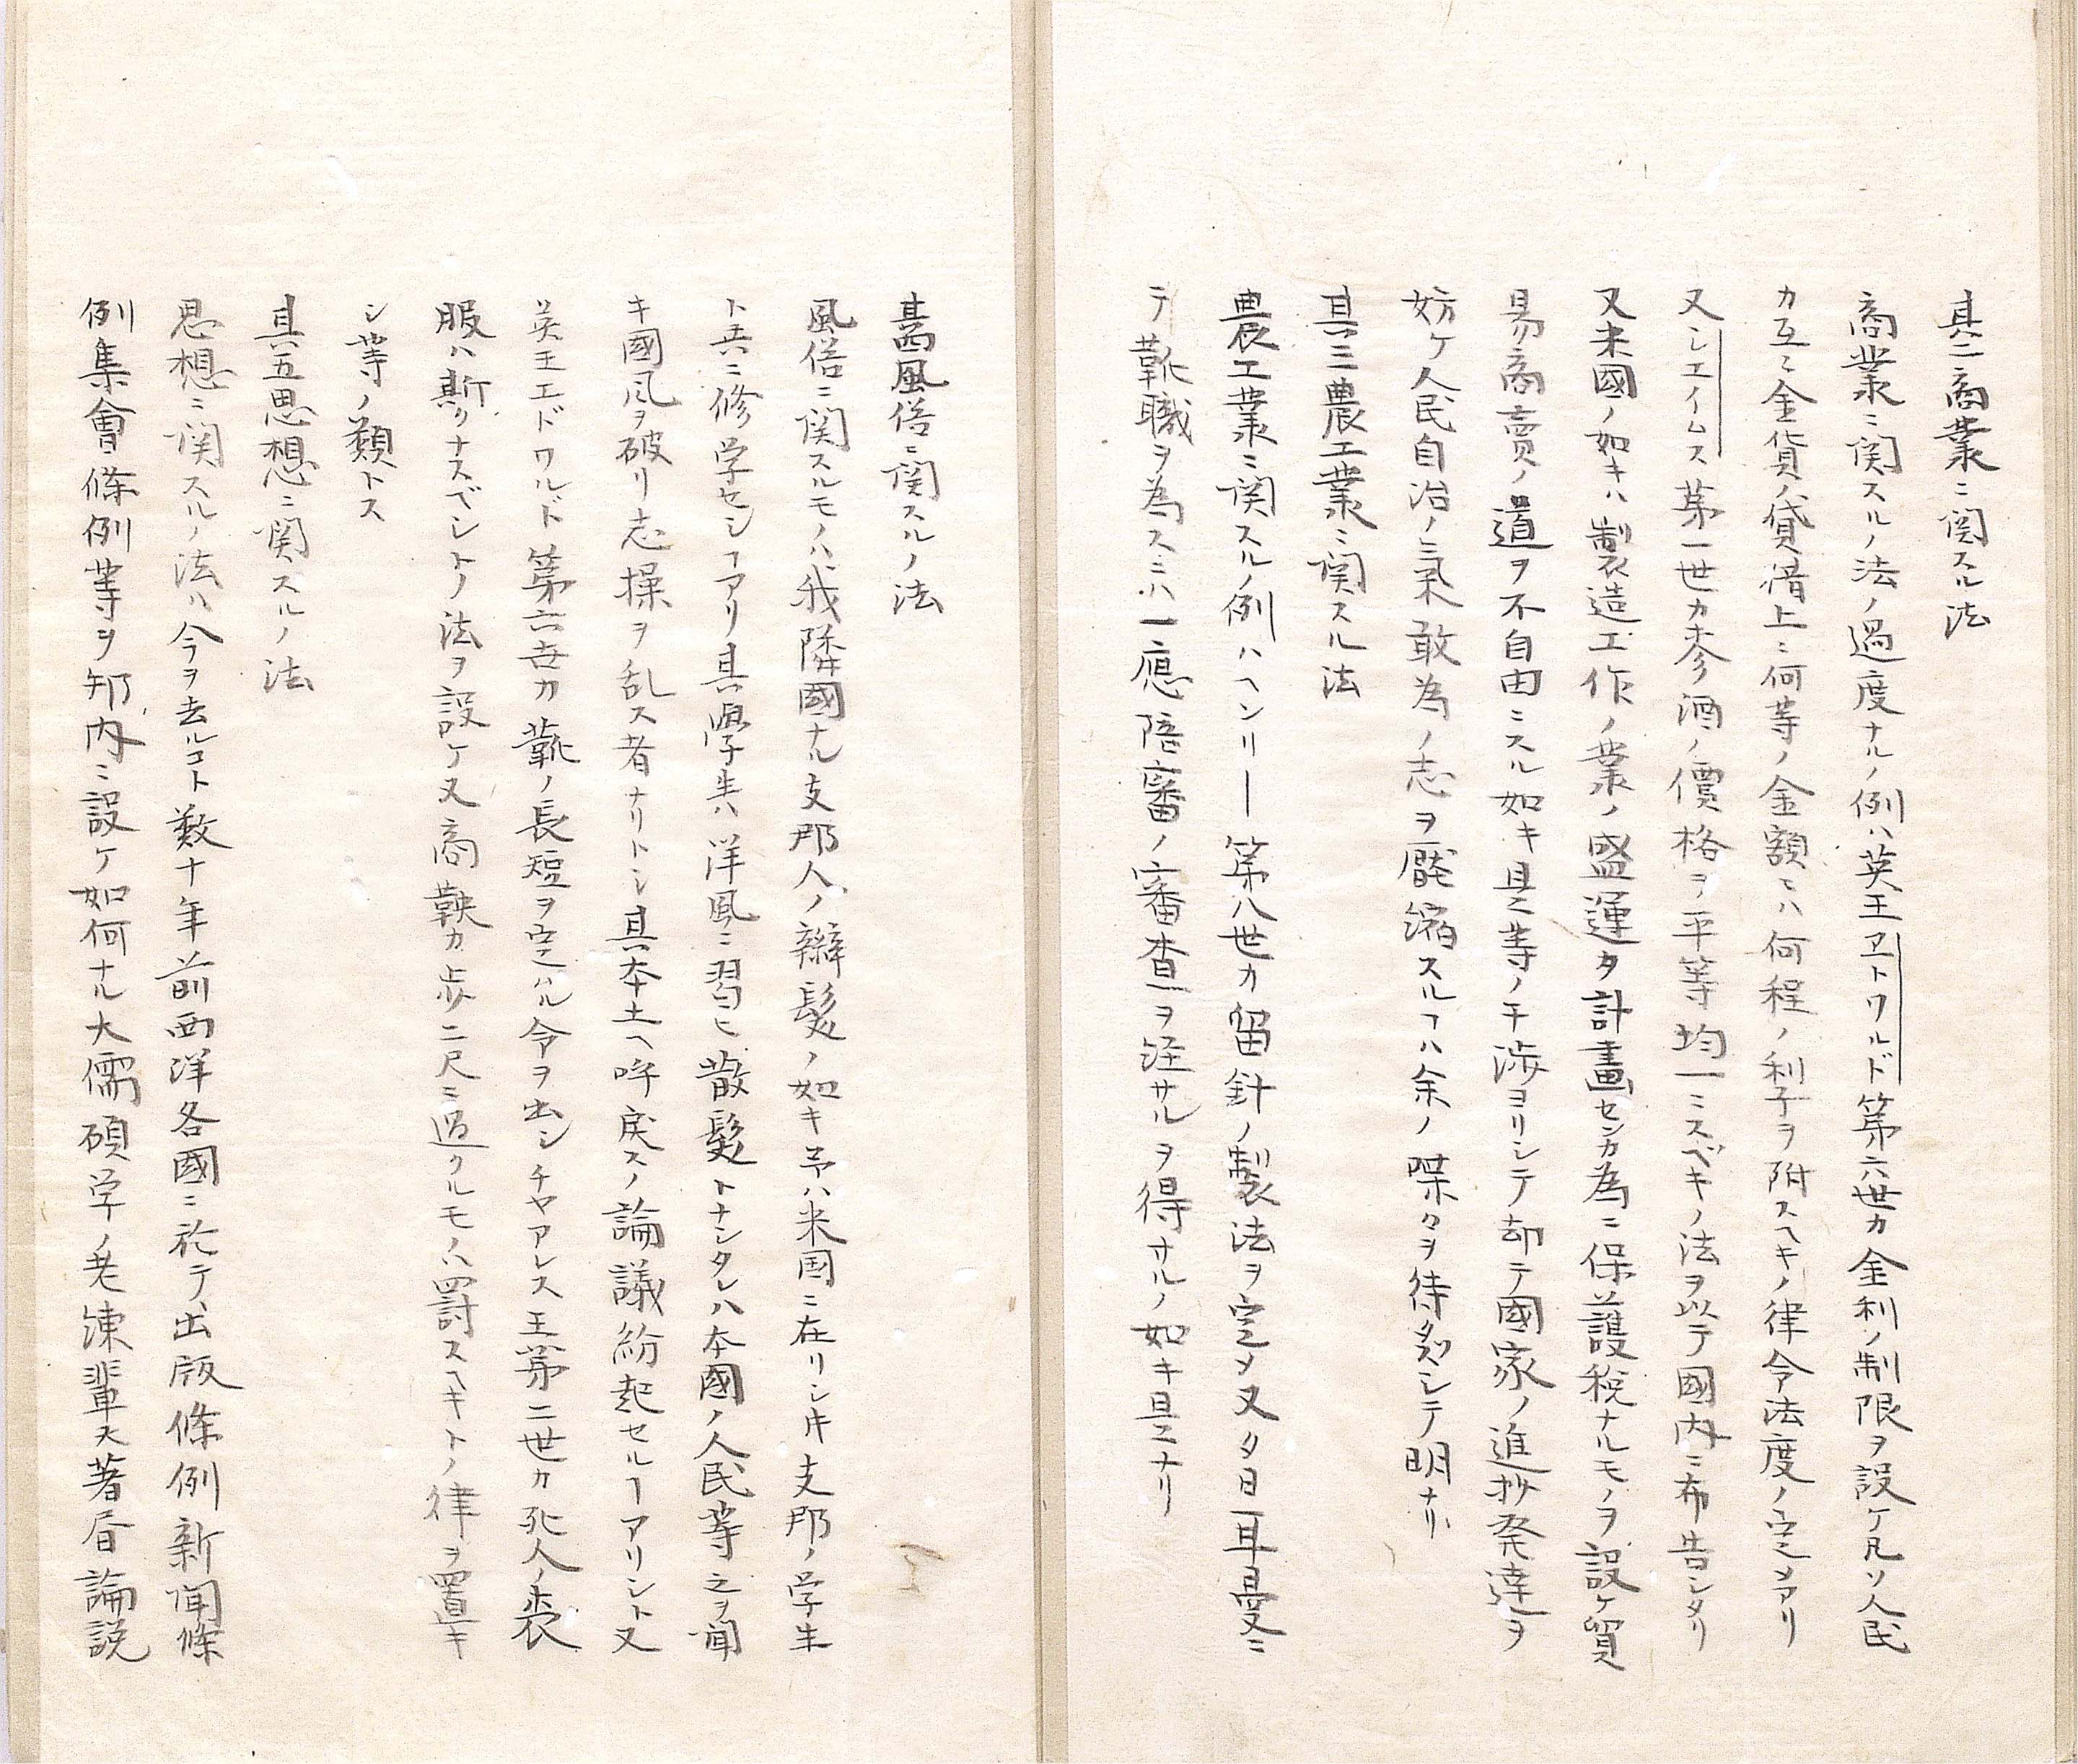 其二商業ニ関スル法
商業ニ関スルノ法ノ過度ナルノ例ハ英王ヱトワルド第六世カ金利ノ制限ヲ設ケ凡ソ人民
カ互ニ金貨ノ貸借上ニ何等ノ金額ニハ何程ノ利子ヲ附スヘキノ律令法度ノ定メアリ
又シエイムス第一世カ麥酒ノ價格ヲ平等均一ニスベキノ法ヲ以テ國内ニ布告シタリ
又米國ノ如キハ製造工作ノ業ノ盛運ヲ計畫センカ為ニ保護税ナルモノヲ設ケ貿
易商賣ノ道ヲ不自由ニスル如キ是等ノ干渉ヨリシテ却テ國家ノ進抄発達ヲ
妨ケ人民自治ノ氣敢為ノ志ヲ厭縮スルヿハ余ノ喋々ヲ待タズシテ明ナリ
其三農工業ニ関スル法
農工業ニ関スルノ例ハヘンリー第八世カ留針ノ製法ヲ定メ又タ日耳曼ニ
テ靴職ヲ為スニハ一應陪審ノ審査ヲ経サルヲ得サルノ如キ是ナリ
其四風俗ニ関スルノ法
風俗ニ関スルモノハ我隣國ナル支那人ノ辮髪ノ如キ予ハ米国ニ在リシ片支那ノ学生
ト共ニ修学セシヿアリ其學生ハ洋風ニ習ヒ散髪トナシタレハ本國ノ人民等之ヲ聞
キ國風ヲ破リ志操ヲ乱ス者ナリトシ其本土ヘ呼戻スノ論議紛起セルヿアリシト又
英王エドワルド第六世カ靴ノ長短ヲ定ムル令ヲ出シチヤアレス王第二世カ死人ノ裳
服ハ斯クナスベシトノ法ヲ設ケ又商鞅カ歩二尺ニ過クルモノハ罰スヘキトノ律ヲ置キ
シ等ノ類トス
其五思想ニ関スルノ法
思想ニ関スルノ法ハ今ヲ去ルコト数十年前西洋各國ニ於テ出版條例新聞條
例集會條例等ヲ邦内ニ設ケ如何ナル大儒碩学ノ老練輩夫著書論説